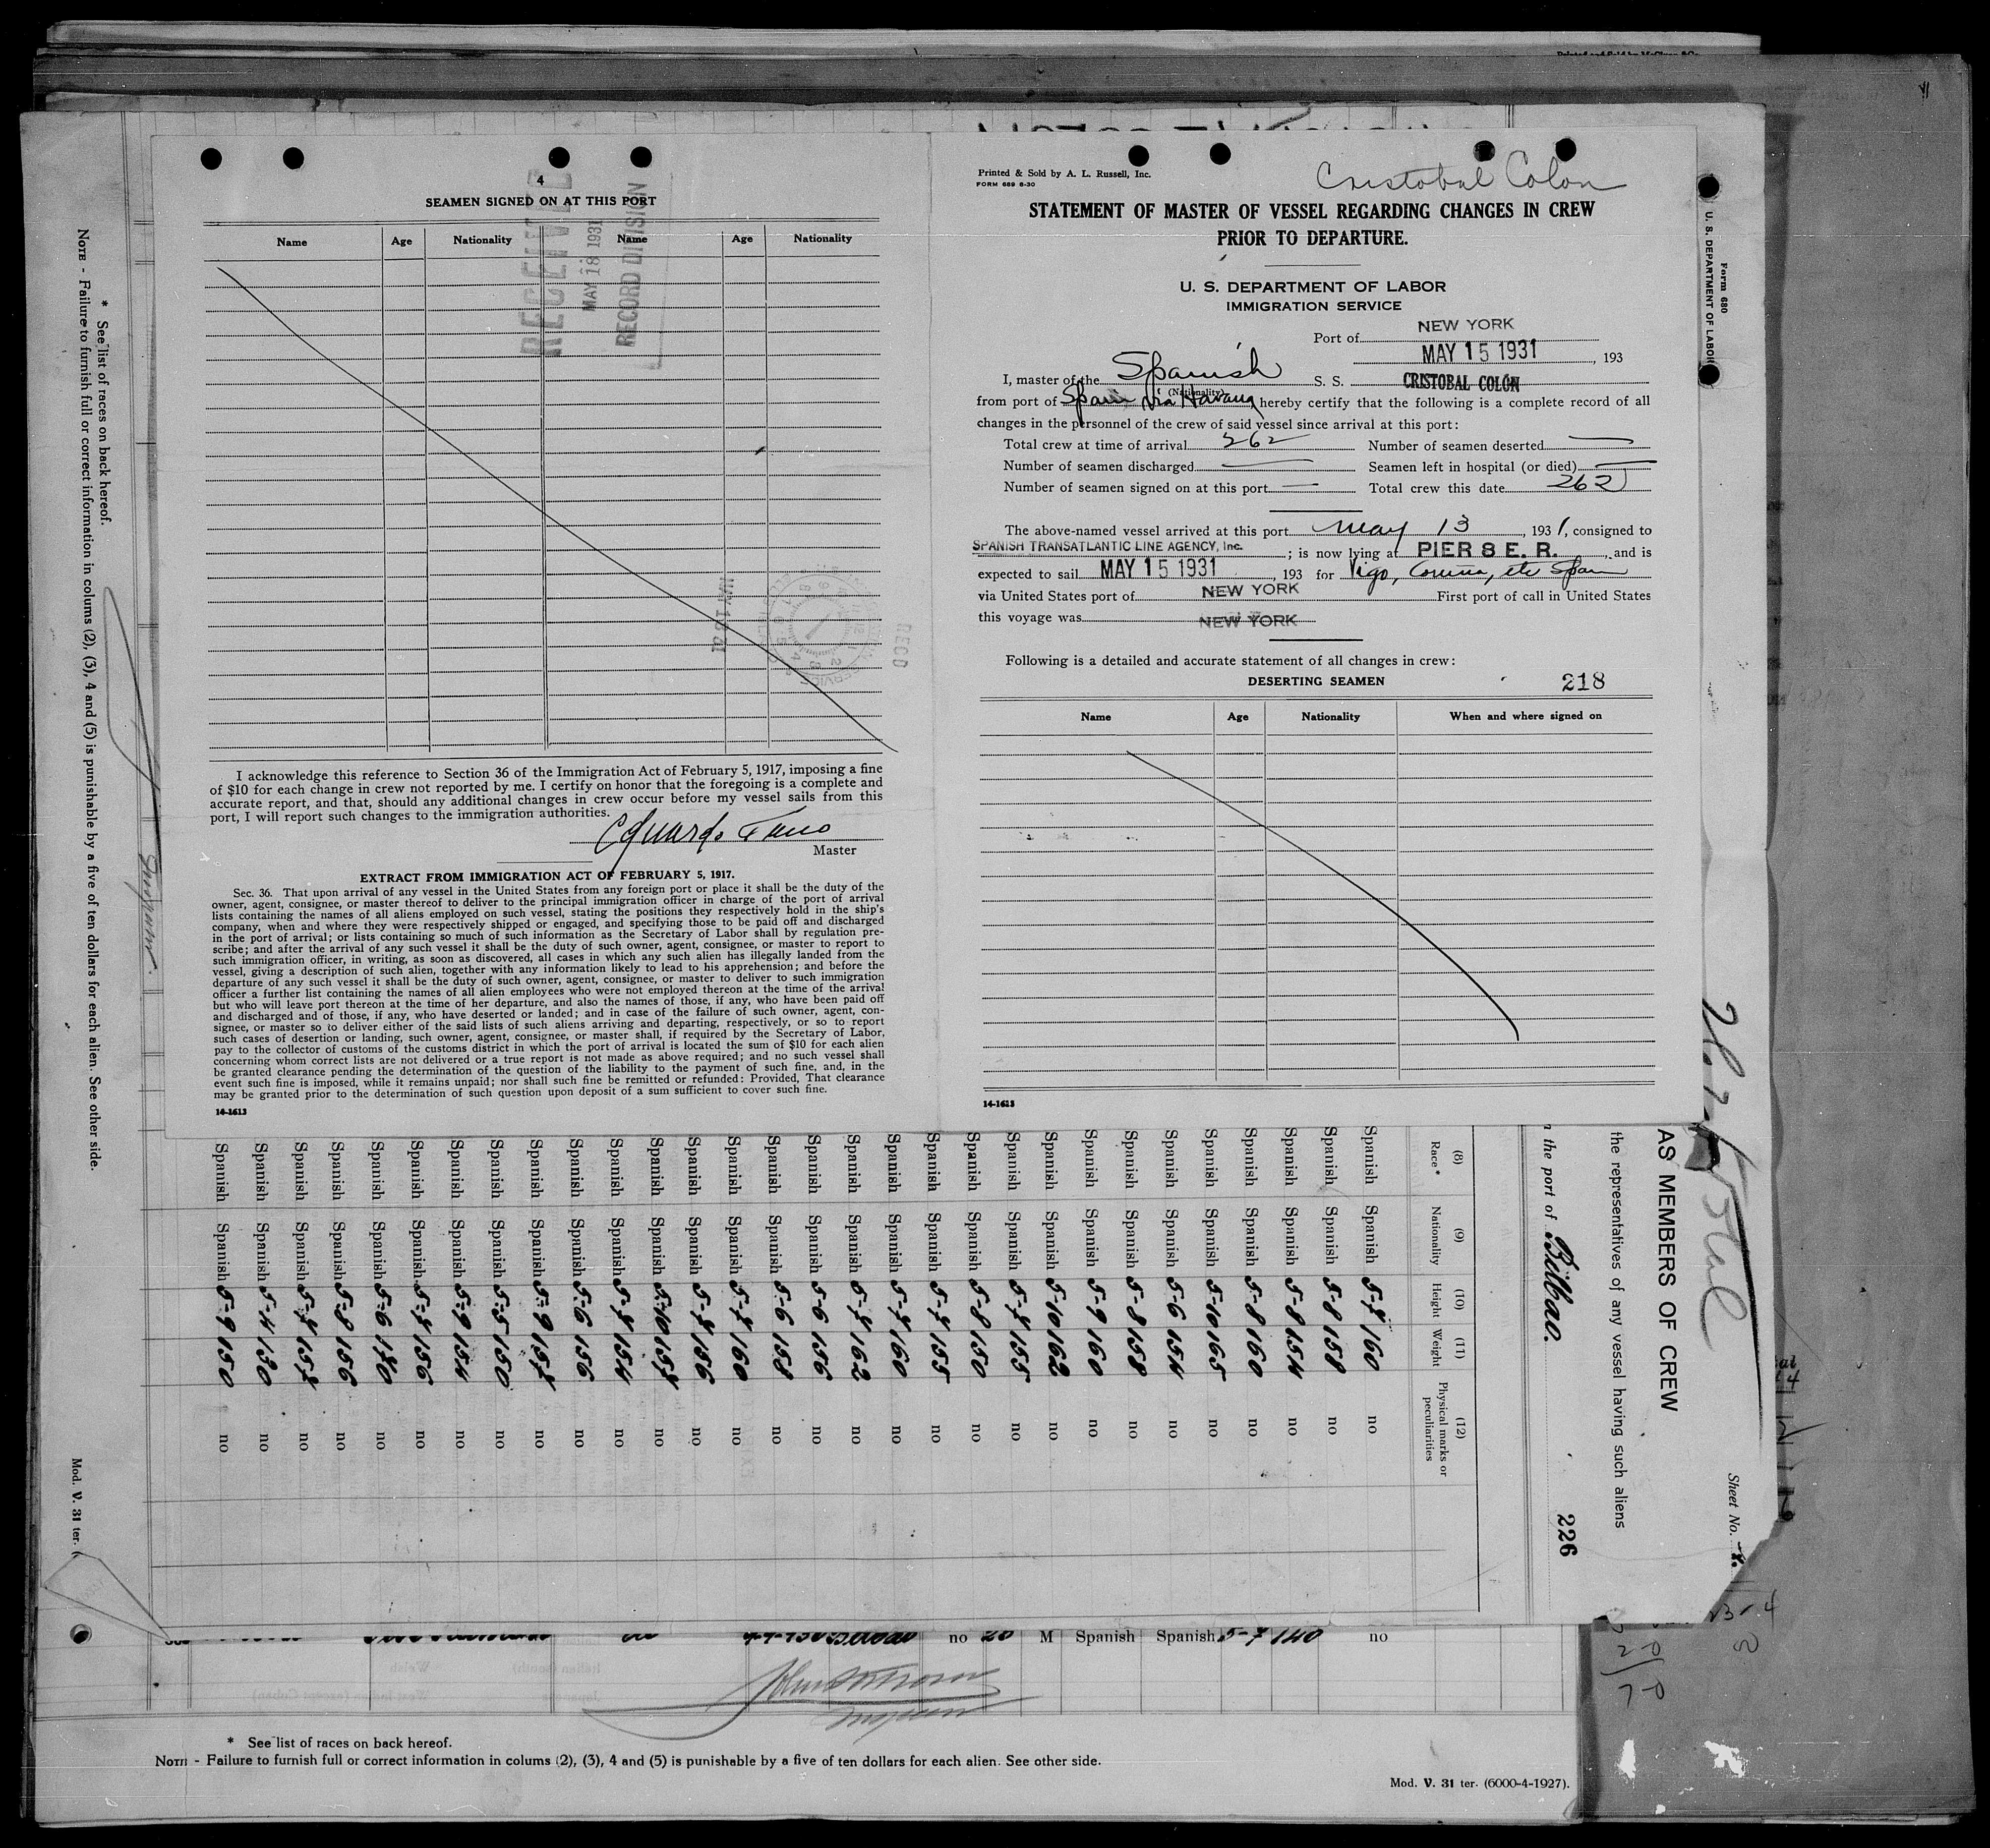 4
SEAMEN SIGNED ON AT THIS PORT
RECEIVED
MAY 18 1931
RECORD DIVISION
Name Age Nationality Name Age Nationality
RECD
I acknowledge this reference to Section 36 of the Immigration Act of February 5, 1917, imposing a fine
of $10 for each change in crew not reported by me. I certify on honor that the foregoing is a complete and
accurate report, and that, should any additional changes in crew occur before my vessel sails from this
port, I will report such changes to the immigration authorities.
Eduardo Fano
Master
EXTRACT FROM IMMIGRATION ACT OF FEBRUARY 5, 1917.
Sec. 36. That upon arrival of any vessel in the United States from any foreign port or place it shall be the duty of the
owner, agent, consignee, or master thereof to deliver to the principal immigration officer in charge of the port of arrival
lists containing the names of all aliens employed on such vessel, stating the positions they respectively hold in the ship's
company, when and where they were respectively shipped or engaged, and specifying those to be paid off and discharged
in the port of arrival; or lists containing so much of such information as the Secretary of Labor shall by regulation pre-
scribe; and after the arrival of any such vessel it shall be the duty of such owner, agent, consignee, or master to report to
such immigration officer, in writing, as soon as discovered, all cases in which any such alien has illegally landed from the
vessel, giving a description of such alien, together with any information likely to lead to his apprehension; and before the
departure of any such vessel it shall be the duty of such owner, agent, consignee, or master to deliver to such immigration
officer a further list containing the names of all alien employees who were not employed thereon at the time of the arrival
but who will leave port thereon at the time of her departure, and also the names of those, if any, who have been paid off
and discharged and of those, if any, who have deserted or landed; and in case of the failure of such owner, agent, con-
signee, or master so to deliver either of the said lists of such aliens arriving and departing, respectively, or so to report
such cases of desertion or landing, such owner, agent, consignee, or master shall, if required by the Secretary of Labor,
pay to the collector of customs of the customs district in which the port of arrival is located the sum of $10 for each alien
concerning whom correct lists are not delivered or a true report is not made as above required; and no such vessel shall
be granted clearance pending the determination of the question of the liability to the payment of such fine, and, in the
event such fine is imposed, while it remains unpaid; nor shall such fine be remitted or refunded: Provided, That clearance
may be granted prior to the determination of such question upon deposit of a sum sufficient to cover such fine.
14-1613
Printed & Sold by A. L. Russell, Inc.
FORM 689 6-30
Cristobal Colon
STATEMENT OF MASTER OF VESSEL REGARDING CHANGES IN CREW
PRIOR TO DEPARTURE.
U. S. DEPARTMENT OF LABOR
IMMIGRATION SERVICE
Port of NEW YORK
MAY 15 1931, 193
I, master of the Spanish S. S. CRISTOBAL COLÓN
(Nationality)
from port of Spain via Havana hereby certify that the following is a complete record of all
changes in the personnel of the crew of said vessel since arrival at this port:
Total crew at time of arrival 262 Number of seamen deserted —
Number of seamen discharged — Seamen left in hospital (or died) —
Number of seamen signed on at this port — Total crew this date 262
The above-named vessel arrived at this port May 13, 1931, consigned to
SPANISH TRANSATLANTIC LINE AGENCY, Inc. ; is now lying at PIER 8 E. R., and is
expected to sail MAY 15 1931, 193 for Vigo, Coruña, etc Spain
via United States port of NEW YORK First port of call in United States
this voyage was NEW YORK
Following is a detailed and accurate statement of all changes in crew:
DESERTING SEAMEN 218
Name Age Nationality When and where signed on
14-1613
Form 680
U. S. DEPARTMENT OF LABOR
Sheet No.
AS MEMBERS OF CREW
the representatives of any vessel having such aliens
the port of Bilbao. 226
(8) Race * (9) Nationality (10) Height (11) Weight (12) Physical marks or peculiarities
Spanish Spanish 5-7 160 no
Spanish Spanish 5-8 158 no
Spanish Spanish 5-8 154 no
Spanish Spanish 5-8 160 no
Spanish Spanish 5-10 165 no
Spanish Spanish 5-6 154 no
Spanish Spanish 5-8 158 no
Spanish Spanish 5-9 160 no
Spanish Spanish 5-10 162 no
Spanish Spanish 5-7 155 no
Spanish Spanish 5-8 150 no
Spanish Spanish 5-7 155 no
Spanish Spanish 5-7 160 no
Spanish Spanish 5-7 162 no
Spanish Spanish 5-6 156 no
Spanish Spanish 5-6 158 no
Spanish Spanish 5-7 160 no
Spanish Spanish 5-7 156 no
Spanish Spanish 5-10 157 no
Spanish Spanish 5-7 154 no
Spanish Spanish 5-6 156 no
Spanish Spanish 5-9 157 no
Spanish Spanish 5-5 150 no
Spanish Spanish 5-9 154 no
Spanish Spanish 5-7 156 no
Spanish Spanish 5-6 no
Spanish Spanish 5-8 156 no
Spanish Spanish 5-7 157 no
Spanish Spanish 5-4 130 no
Spanish Spanish 5-9 150 no
* See list of races on back hereof.
NOTE - Failure to furnish full or correct information in colums (2), (3), 4 and (5) is punishable by a five of ten dollars for each alien. See other side.
Mod. V. 31 ter. (
no 28 M Spanish Spanish 5-7 140 no
* See list of races on back hereof.
NOTE - Failure to furnish full or correct information in colums (2), (3), 4 and (5) is punishable by a five of ten dollars for each alien. See other side.
Mod. V. 31 ter. (6000-4-1927).